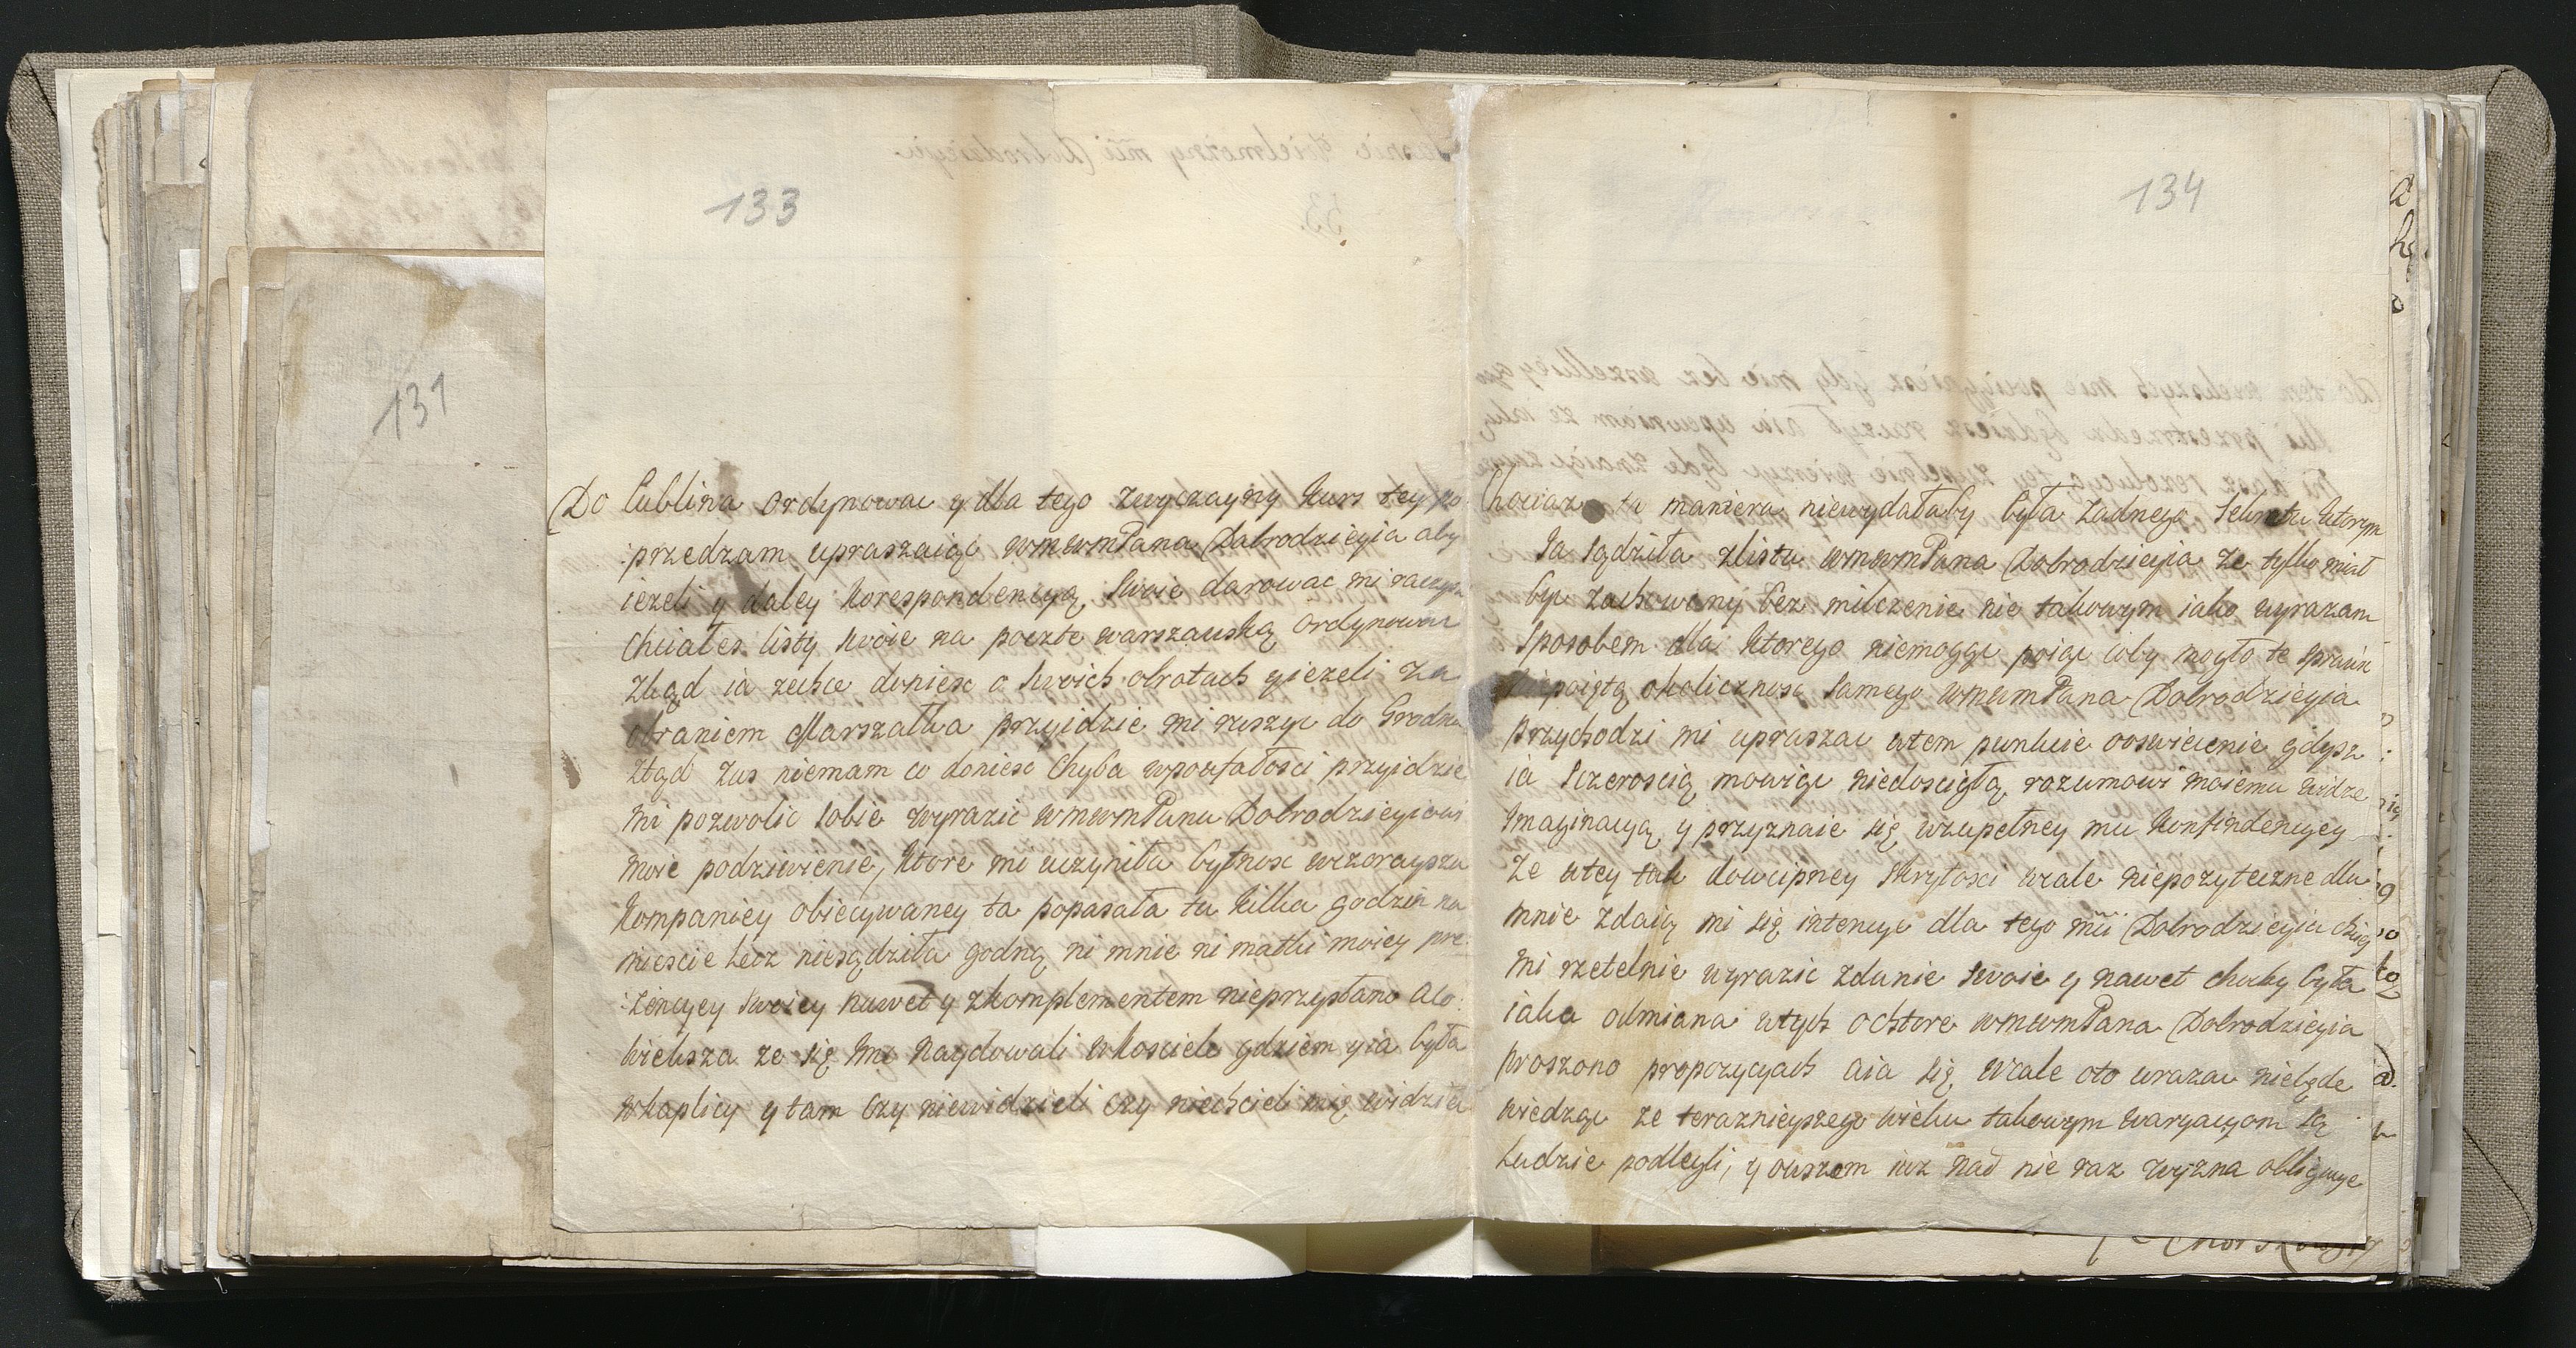 133
Do Lublina ordynowac y dla tego zwyczayny kurs tey po
przedzam upraszaiąc wmwmPana Dobrodzieyia aby
iezeli y daley korespondencyą swoie darowac mi raczysz
chciałes listy swoie na poczte warszawską ordynowac
zkąd ia zechce doniesc o swoich obrotach y iezeli za
obraniem Marszałka przyidzie mi ruszyc do Grodna
ztąd zas niemam co doniesc chyba wpoufałosci przyidzie
mi pozwolic sobie wyrazic wmwmPanu Dobrodzieyiowi
moie podziwienie, ktore mi uczyniła bytnosc wczoraysza
kompaniey obiecywaney ta popasała tu kilka godzin na
miescie lecz niesądziła godną ni mnie ni matki moiey pre
zencyey swoiey nawet y zkomplementem nieprzysłano a co
wieksza ze się mi naydowali wkosciele gdziem y ia była
wkaplicy y tam czy niewidzieli czy niechcieli mię widziec
134
Chociaz ta maniera niewydałaby była zadnego sekretu ktorym
Ja sądziła zlistu wmwmPana Dobrodzieyia ze tylko miał
byc zachowany bez milczenie nie takowym iako wyrazam
sposobem dla ktorego niemoggc poiąc coby mogło te sprawic
niepoiętą okolicznosc samego wmwmPana Dobrodzieyia
przychodzi mi upraszac wtem punkcie ooswiecenie gdysz
ia sczeroscią mowiąc niedoscigłą rozumowi moiemu widze
imaginacyą y przyznaie się wzupełney mu konfindencyey
ze wtey tak dowcipney skrytosci wcale niepozyteczne dla
mnie zdaią mi się intencye dla tego mci Dobrodzieyiu chciey
mi rzetelnie wyrazic zdanie swoie y nawet chocby była
iaka odmiana wtych oktore wmwmPana Dobrodzieyia
proszono propozycyach aia się wcale oto urazac niebęde
wiedząc ze teraznieyszego wieku takowym waryacyom są
Ludzie podlegli, y owszem iuz nad nie raz wyzna obligacye
131